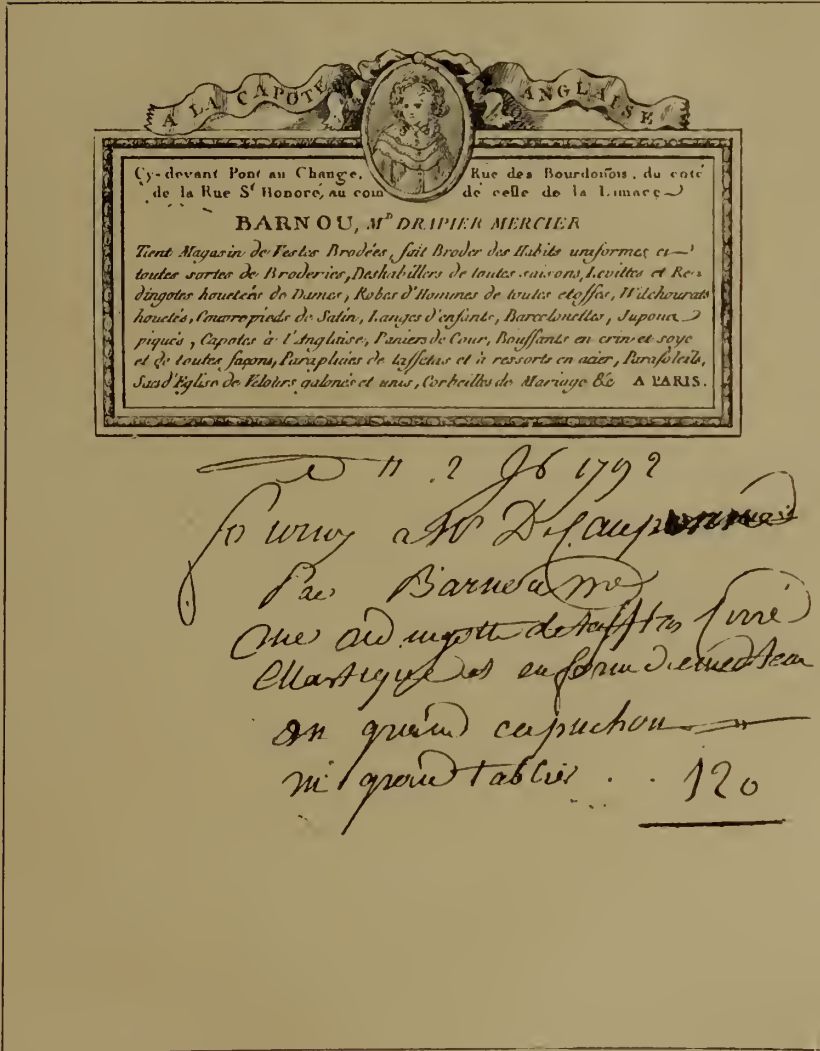 A LA CAPOTE ANGLAISE
Cy-devant Pont au Change, Rue des Bourdonois, du coté
de la Rue St Honoré, au coin de celle de la Limace
BARNOU, MD DRAPIER MERCIER
Tient Magasin de Vestes Brodées, fait Broder des Habits uniformes et
toutes sortes de Broderies, Deshabillers de toutes saisons, Levittes et Re-
dingotes houetées de Dames, Robes d'Hommes de toutes etoffes, Witchourats
houetés, Couvrepieds de Satin, Langes d'enfants, Barcelonettes, Jupons
piqués, Capotes à l'Anglaise, Paniers de Cour, Bouffants en crin et soye
et de toutes façons, Parapluies de taffetas et à ressorts en acier, Parasoleils,
Sacs d'Eglise de Velours galonés et unis, Corbeilles de Mariage &c A PARIS.
2 1792
a Mr
Par Barnou
de taffetas
et en forme de
un grand capuchon
grand tablier . . 120